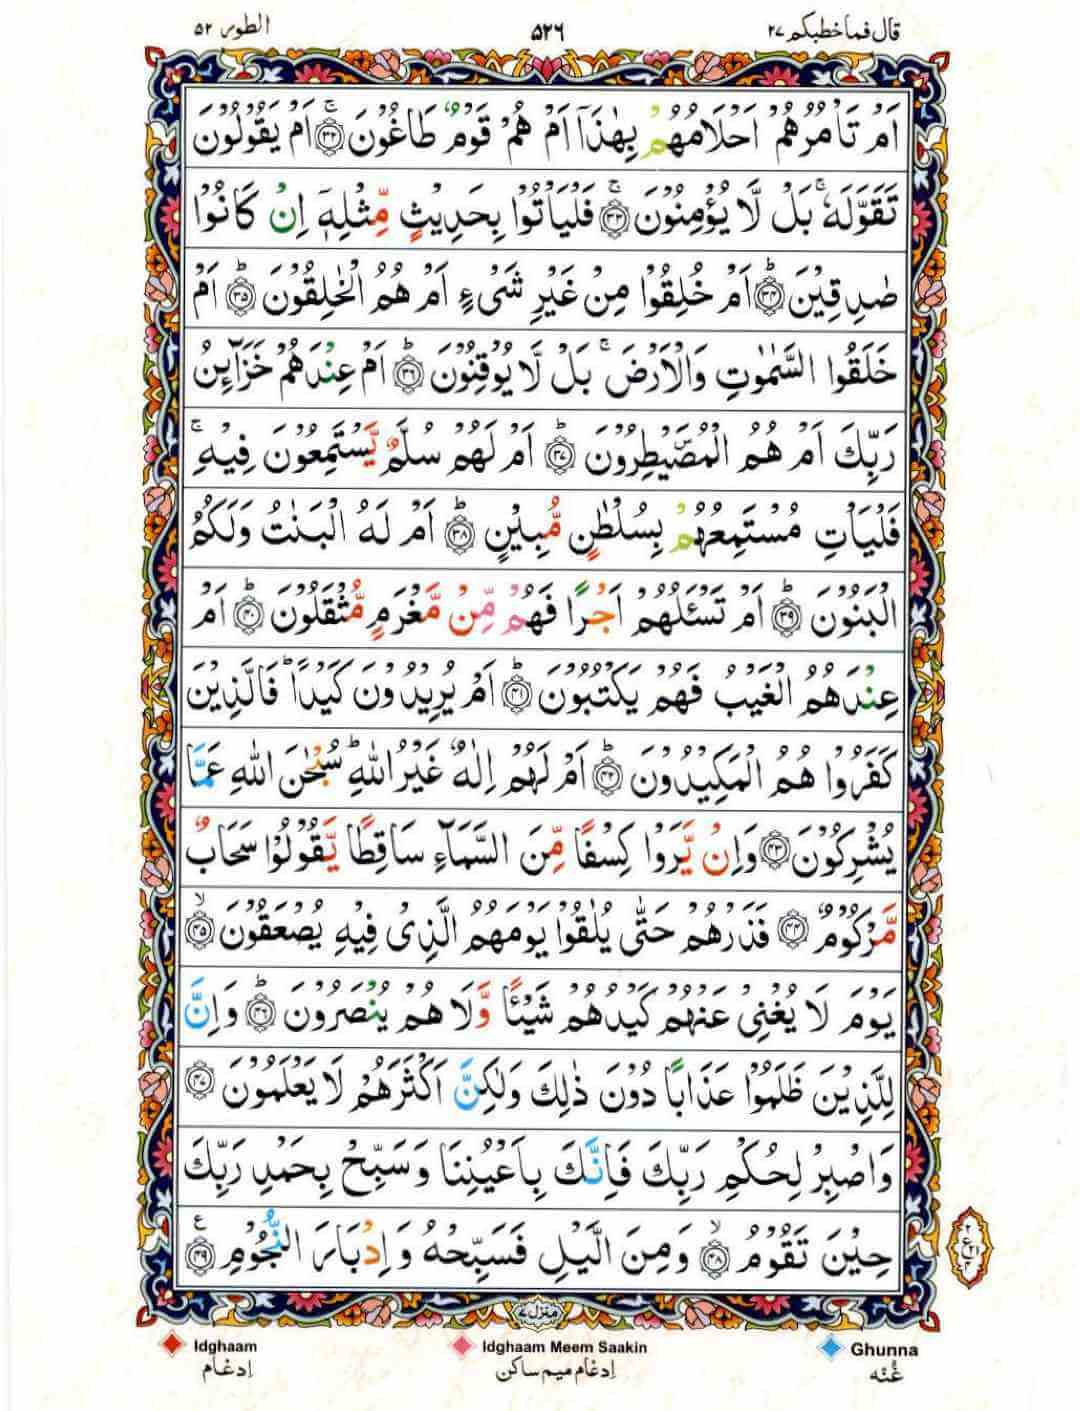 قال فما خطبكم ٢٧
٥٢٦
الطور ٥٢
اَمۡ تَاۡمُرُهُمۡ اَحۡلَامُهُمۡ بِهٰذَآ اَمۡ هُمۡ قَوۡمٌ طَاغُوۡنَ ۚ‏﴿۳۲﴾ اَمۡ يَقُوۡلُوۡنَ
تَقَوَّلَهٗ ۚ بَلۡ لَّا يُؤۡمِنُوۡنَ ۚ‏﴿۳۳﴾ فَلۡيَاۡتُوۡا بِحَدِيۡثٍ مِّثۡلِهٖۤ اِنۡ كَانُوۡا
صٰدِقِيۡنَ ؕ‏﴿۳۴﴾ اَمۡ خُلِقُوۡا مِنۡ غَيۡرِ شَىۡءٍ اَمۡ هُمُ الۡخٰلِقُوۡنَ ؕ‏﴿۳۵﴾ اَمۡ
خَلَقُوا السَّمٰوٰتِ وَالۡاَرۡضَ ۚ بَلۡ لَّا يُوۡقِنُوۡنَ ؕ‏﴿۳۶﴾ اَمۡ عِنۡدَهُمۡ خَزَآئِنُ
رَبِّكَ اَمۡ هُمُ الۡمُصَۜيۡطِرُوۡنَ ؕ‏﴿۳۷﴾ اَمۡ لَهُمۡ سُلَّمٌ يَّسۡتَمِعُوۡنَ فِيۡهِ ۚ
فَلۡيَاۡتِ مُسۡتَمِعُهُمۡ بِسُلۡطٰنٍ مُّبِيۡنٍ ؕ‏﴿۳۸﴾ اَمۡ لَهُ الۡبَنٰتُ وَلَكُمُ
الۡبَنُوۡنَ ؕ‏﴿۳۹﴾ اَمۡ تَسۡـَٔلُهُمۡ اَجۡرًا فَهُمۡ مِّنۡ مَّغۡرَمٍ مُّثۡقَلُوۡنَ ؕ‏﴿۴۰﴾ اَمۡ
عِنۡدَهُمُ الۡغَيۡبُ فَهُمۡ يَكۡتُبُوۡنَ ؕ‏﴿۴۱﴾ اَمۡ يُرِيۡدُوۡنَ كَيۡدًا ؕ فَالَّذِيۡنَ
كَفَرُوۡا هُمُ الۡمَكِيۡدُوۡنَ ؕ‏﴿۴۲﴾ اَمۡ لَهُمۡ اِلٰهٌ غَيۡرُ اللّٰهِ ؕ سُبۡحٰنَ اللّٰهِ عَمَّا
يُشۡرِكُوۡنَ‏ ﴿۴۳﴾ وَاِنۡ يَّرَوۡا كِسۡفًا مِّنَ السَّمَآءِ سَاقِطًا يَّقُوۡلُوۡا سَحَابٌ
مَّرۡكُوۡمٌ‏ ﴿۴۴﴾ فَذَرۡهُمۡ حَتّٰى يُلٰقُوۡا يَوۡمَهُمُ الَّذِىۡ فِيۡهِ يُصۡعَقُوۡنَ ۙ‏﴿۴۵﴾
يَوۡمَ لَا يُغۡنِىۡ عَنۡهُمۡ كَيۡدُهُمۡ شَيۡـًٔا وَّلَا هُمۡ يُنۡصَرُوۡنَ ؕ‏﴿۴۶﴾ وَاِنَّ
لِلَّذِيۡنَ ظَلَمُوۡا عَذَابًا دُوۡنَ ذٰلِكَ وَلٰكِنَّ اَكۡثَرَهُمۡ لَا يَعۡلَمُوۡنَ‏ ﴿۴۷﴾
وَاصۡبِرۡ لِحُكۡمِ رَبِّكَ فَاِنَّكَ بِاَعۡيُنِنَا وَسَبِّحۡ بِحَمۡدِ رَبِّكَ
حِيۡنَ تَقُوۡمُ ۙ‏﴿۴۸﴾ وَمِنَ الَّيۡلِ فَسَبِّحۡهُ وَاِدۡبَارَ النُّجُوۡمِ ‏﴿۴۹﴾ ع
٢
ع ٢١
٤
منزل ٧
Idghaam
Idghaam Meem Saakin
Ghunna
اِدغام
اِدغام میم ساکن
غُنّه